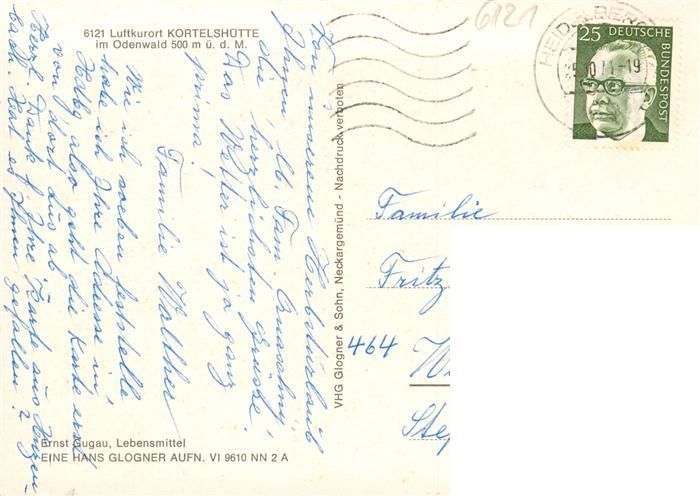 6121 Luftkurort KORTELSHÜTTE
im Odenwald 500 m ü. d. M.
6121
HEIDELBERG
-19
25 DEUTSCHE
BUNDESPOST
Von unserem Herbsturlaub
Ihnen, lb. Fam.
die herzlichsten Grüße.
Das Wetter ist ja ganz
prima!
Familie Walther
Wie ich soeben feststelle
habe ich Ihre Adresse in
also geht die Karte erst
von dort aus ab.
Herzl. Dank f. Ihre Karte aus
Hat es Ihnen gefallen?
VHG Glogner & Sohn, Neckargemünd - Nachdruck verboten
Familie
Fritz
464 W
Ste
Ernst Gugau, Lebensmittel
EINE HANS GLOGNER AUFN. VI 9610 NN 2 A